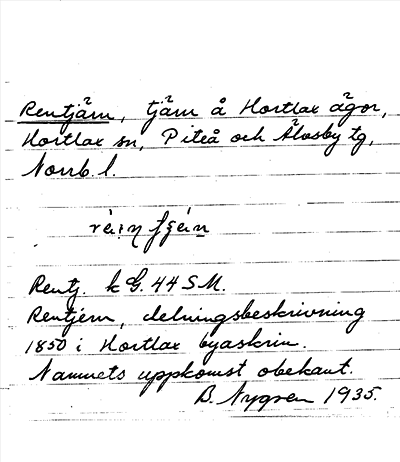 Rentjärn, tjärn å Hortlax ägor,
Hortlax sn, Piteå och Älvsby tg,
Norrb. l.
Rentj. k G. 44 S M.
Rentjern, delningsbeskrivning
1850 i Hortlax byaskrin.
Namnets uppkomst obekant.
B. Nygren 1935.